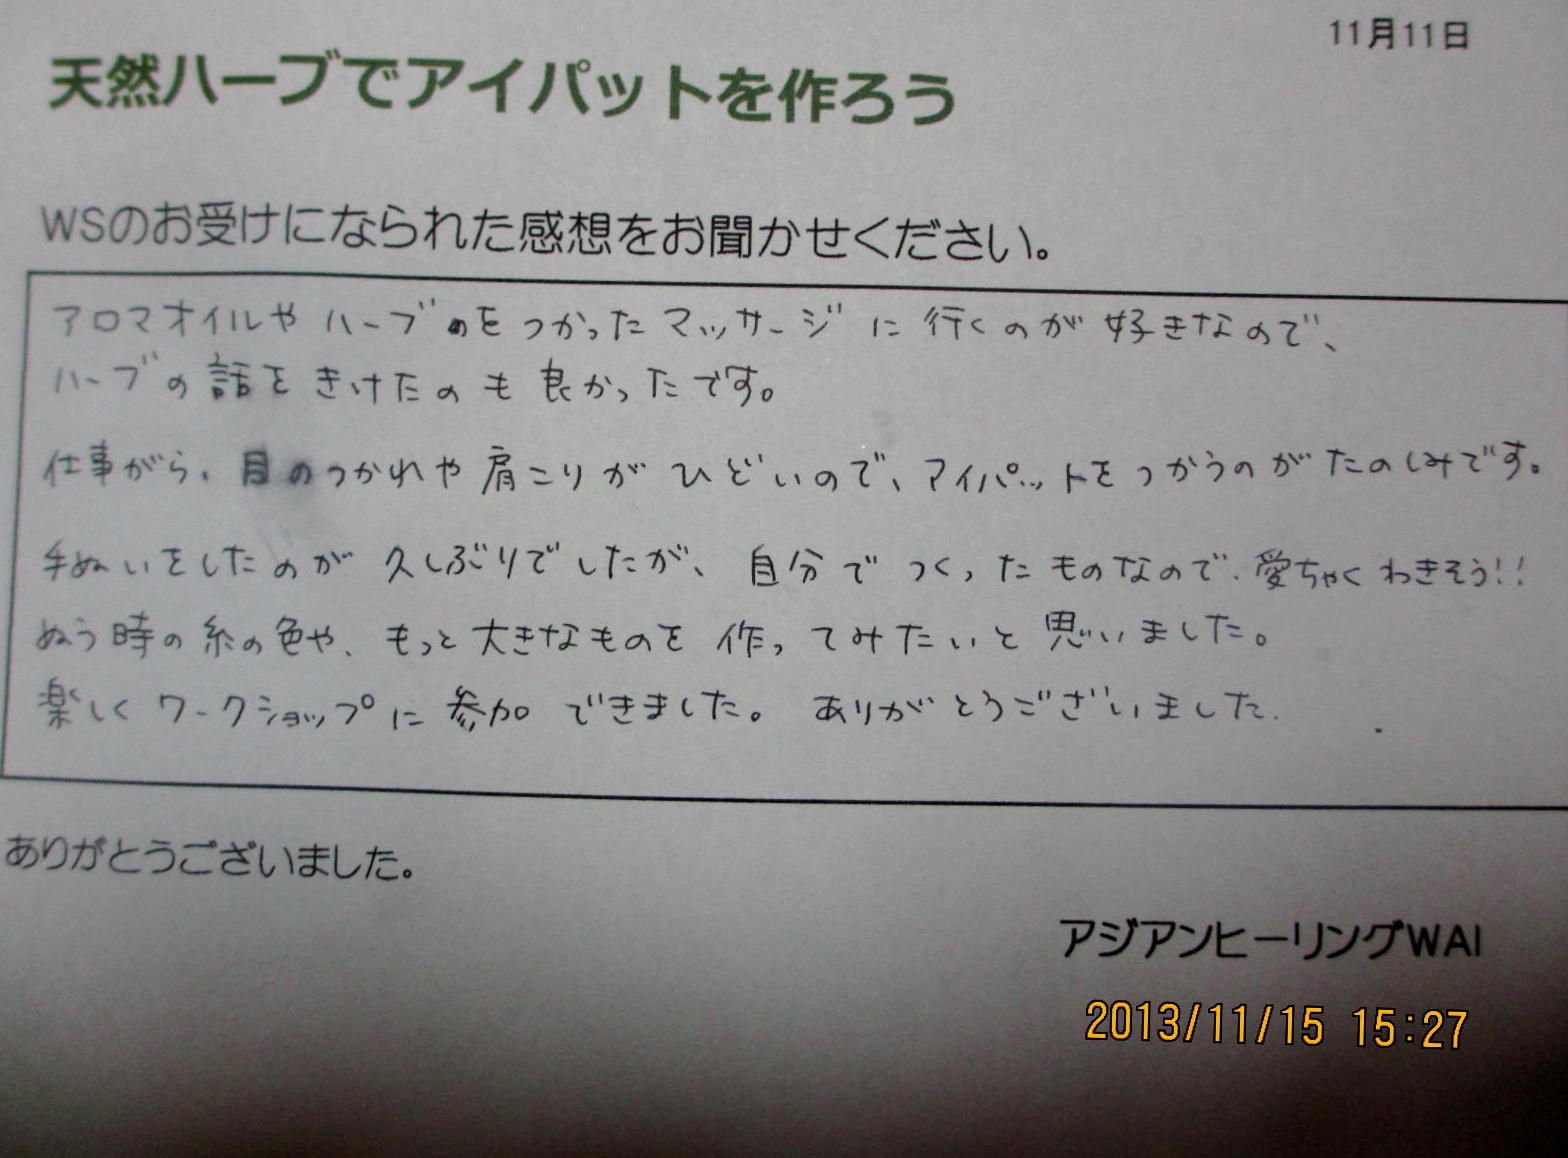 11月11日
天然ハーブでアイパットを作ろう
WSのお受けになられた感想をお聞かせください。
アロマオイルや ハーブをつかったマッサージに行くのが好きなので、
ハーブの話をきけたのも良かったです。
仕事がら、目のつかれや肩こりがひどいので、アイパットをつかうのがたのしみです。
手ぬいをしたのが久しぶりでしたが、自分でつくったものなので、愛ちゃくわきそう!!
ぬう時の糸の色や、もっと大きなものを作ってみたいと思いました。
楽しくワークショップに参加できました。ありがとうございました.
ありがとうございました。
アジアンヒーリングWAI
2013/11/15 15:27